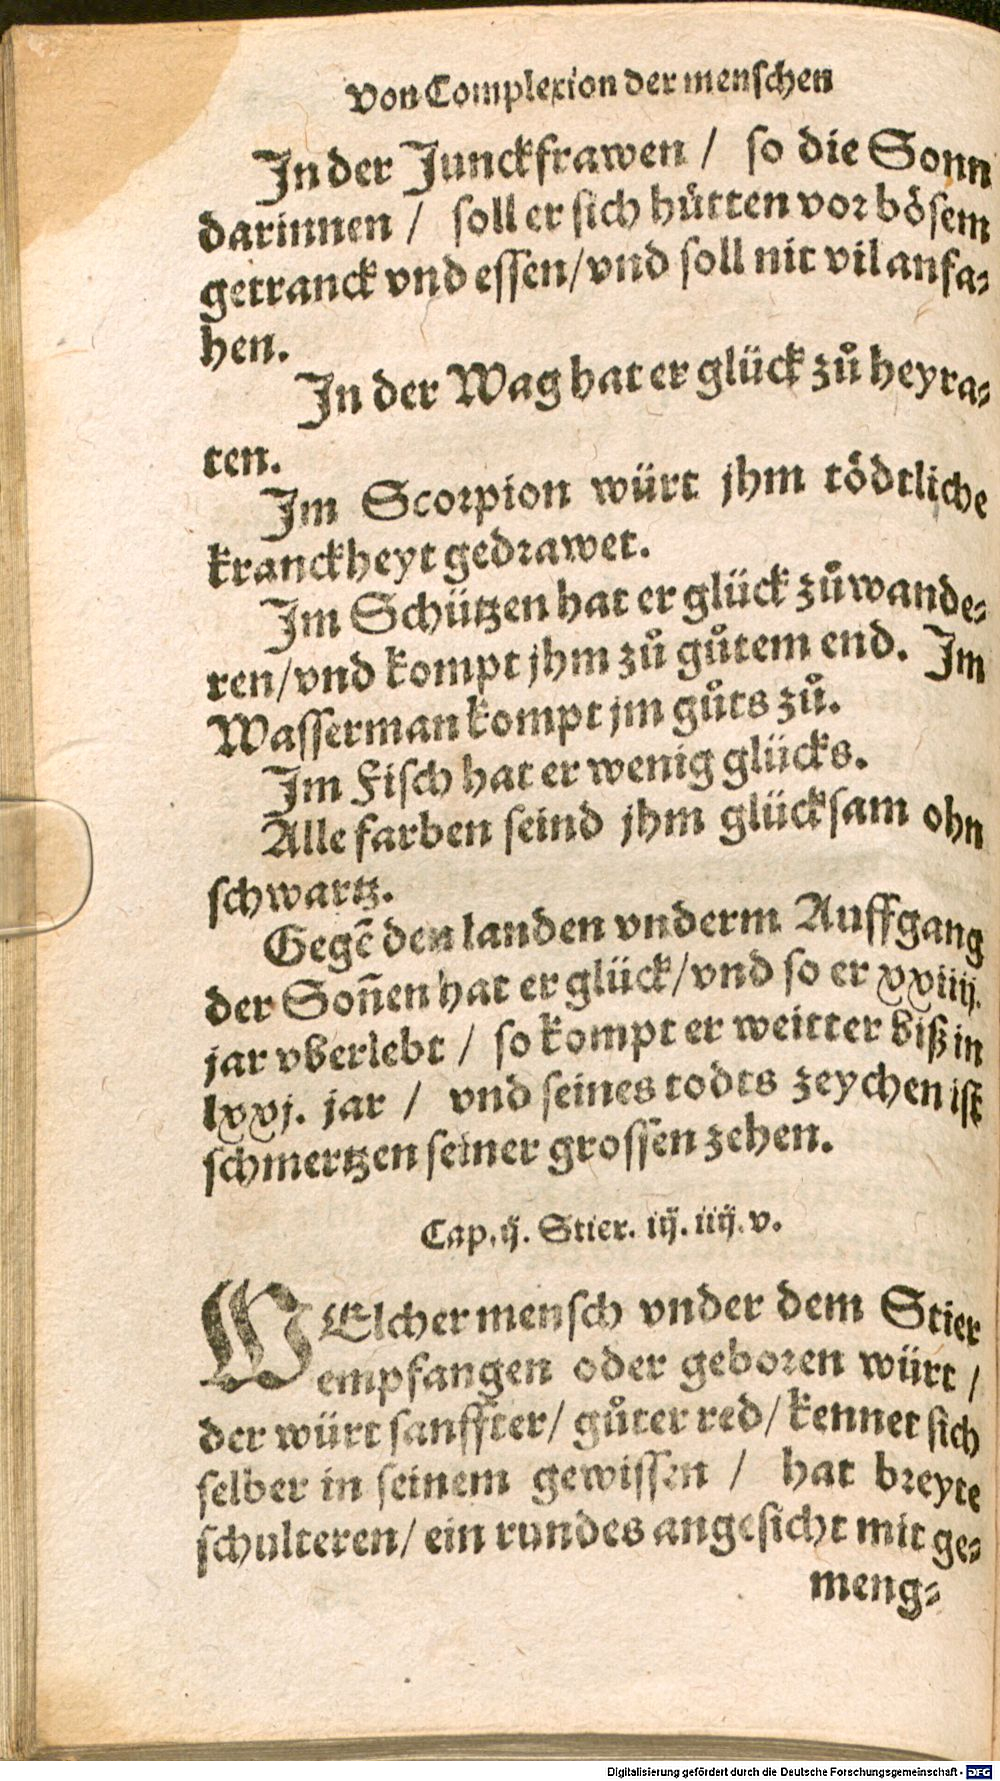 von Complexion der menschen
In der Junckfrawen / so die Sonn
darinnen / soll er sich hütten vor bösem
getranck vnd essen/vnd soll nit vil anfa⸗
hen.
In der Wag hat er glück zů heyra⸗
ten.
Im Scorpion würt jhm tödtliche
kranckheyt gedrawet.
Im Schützen hat er glück zůwande⸗
ren/vnd kompt jhm zů gůtem end. Im
Wasserman kompt jm gůts zů.
Im Fisch hat er wenig glücks.
Alle farben seind jhm glücksam ohn
schwartz.
Gegē den landen vnderm Auffgang
der Soñen hat er glück/vnd so er xxiiij.
jar vberlebt / so kompt er weitter biß in
lxxj. jar / vnd seines todts zeychen ist
schmertzen seiner grossen zehen.
Cap. ij. Stier. iij. iiij. v.
WElcher mensch vnder dem Stier
empfangen oder geboren würt /
der würt sanffter/ gůter red/ kennet sich
selber in seinem gewissen / hat breyte
schulteren/ ein rundes angesicht mit ge⸗
meng⸗
Digitalisierung gefördert durch die Deutsche Forschungsgemeinschaft - DFG